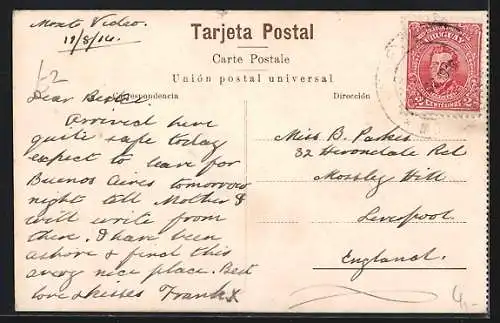 Monte Video.
19/8/14.
Tarjeta Postal
Carte Postale
Unión postal universal
Correspondencia
Dirección
URUGUAY
2 CENTESIMOS 2
£2
Dear
Arrived here
quite safe today
expect to leave for
Buenos Aires tomorrow
night tell Mother I
will write from
there. I have been
ashore & find this
a very nice place. Best
love & kisses Frank x
Miss B. Parkes
32 Rd
Mossley Hill
Liverpool
England.
4,-